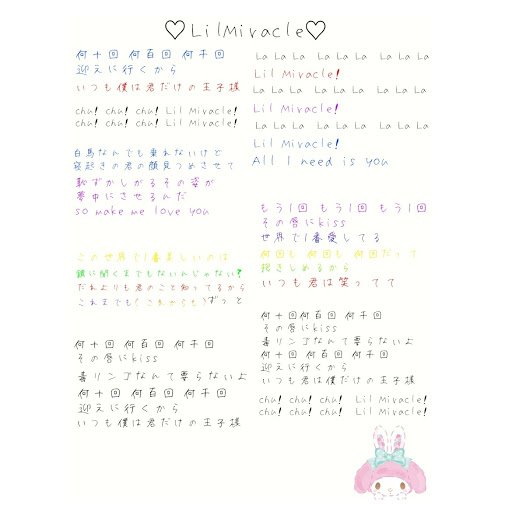 ♡LilMiracle♡
何十回 何百回 何千回
迎えに行くから
いつも僕は君だけの王子様
chu! chu! chu! Lil Miracle!
chu! chu! chu! Lil Miracle!
白馬なんでも乗れないけど
寝起きの君の顔見つめさせて
恥ずかしがるその姿が
夢中にさせるんだ
so make me love you
この世界で1番美しいのは
鏡に聞くまでもないんじゃない?
だれよりも君のこと知ってるから
これまでも(これからも)ずっと
何十回 何百回 何千回
その唇にkiss
毒リンゴなんて要らないよ
何十回 何百回 何千回
迎えに行くから
いつも僕は君だけの王子様
La La La La La La La La La
Lil Miracle!
La La La La La La La La La
Lil Miracle!
La La La La La La La La La
Lil Miracle!
All I need is you
もう1回 もう1回 もう1回
その唇にkiss
世界で1番愛してる
何回も 何回も 何回だって
抱きしめるから
いつも君は笑ってて
何十回 何百回 何千回
その唇にkiss
毒リンゴなんて要らないよ
何十回 何百回 何千回
迎えに行くから
いつも僕は君だけの王子様
chu! chu! chu! Lil Miracle!
chu! chu! chu! Lil Miracle!